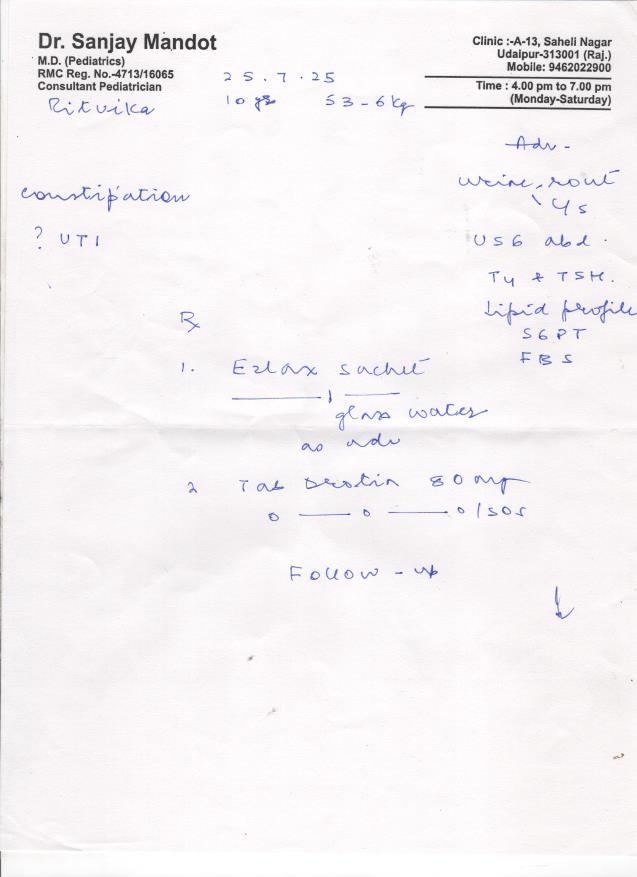 Dr. Sanjay Mandot
M.D. (Pediatrics)
RMC Reg. No.-4713/16065
Consultant Pediatrician
Clinic :-A-13, Saheli Nagar
Udaipur-313001 (Raj.)
Mobile: 9462022900
Time : 4.00 pm to 7.00 pm
(Monday-Saturday)
25.7.25
Ritvika 10 yrs 53-6 kg
Adv -
Urine, rout
constipation
? UTI
USG abd.
T4 & TSH.
Lipid profile
SGPT
FBS
Rx
1. Ezlax sachet
1
glass water
as adv
2 Tab Drotin 80 mg
0 — 0 — 0/SOS
Follow-up